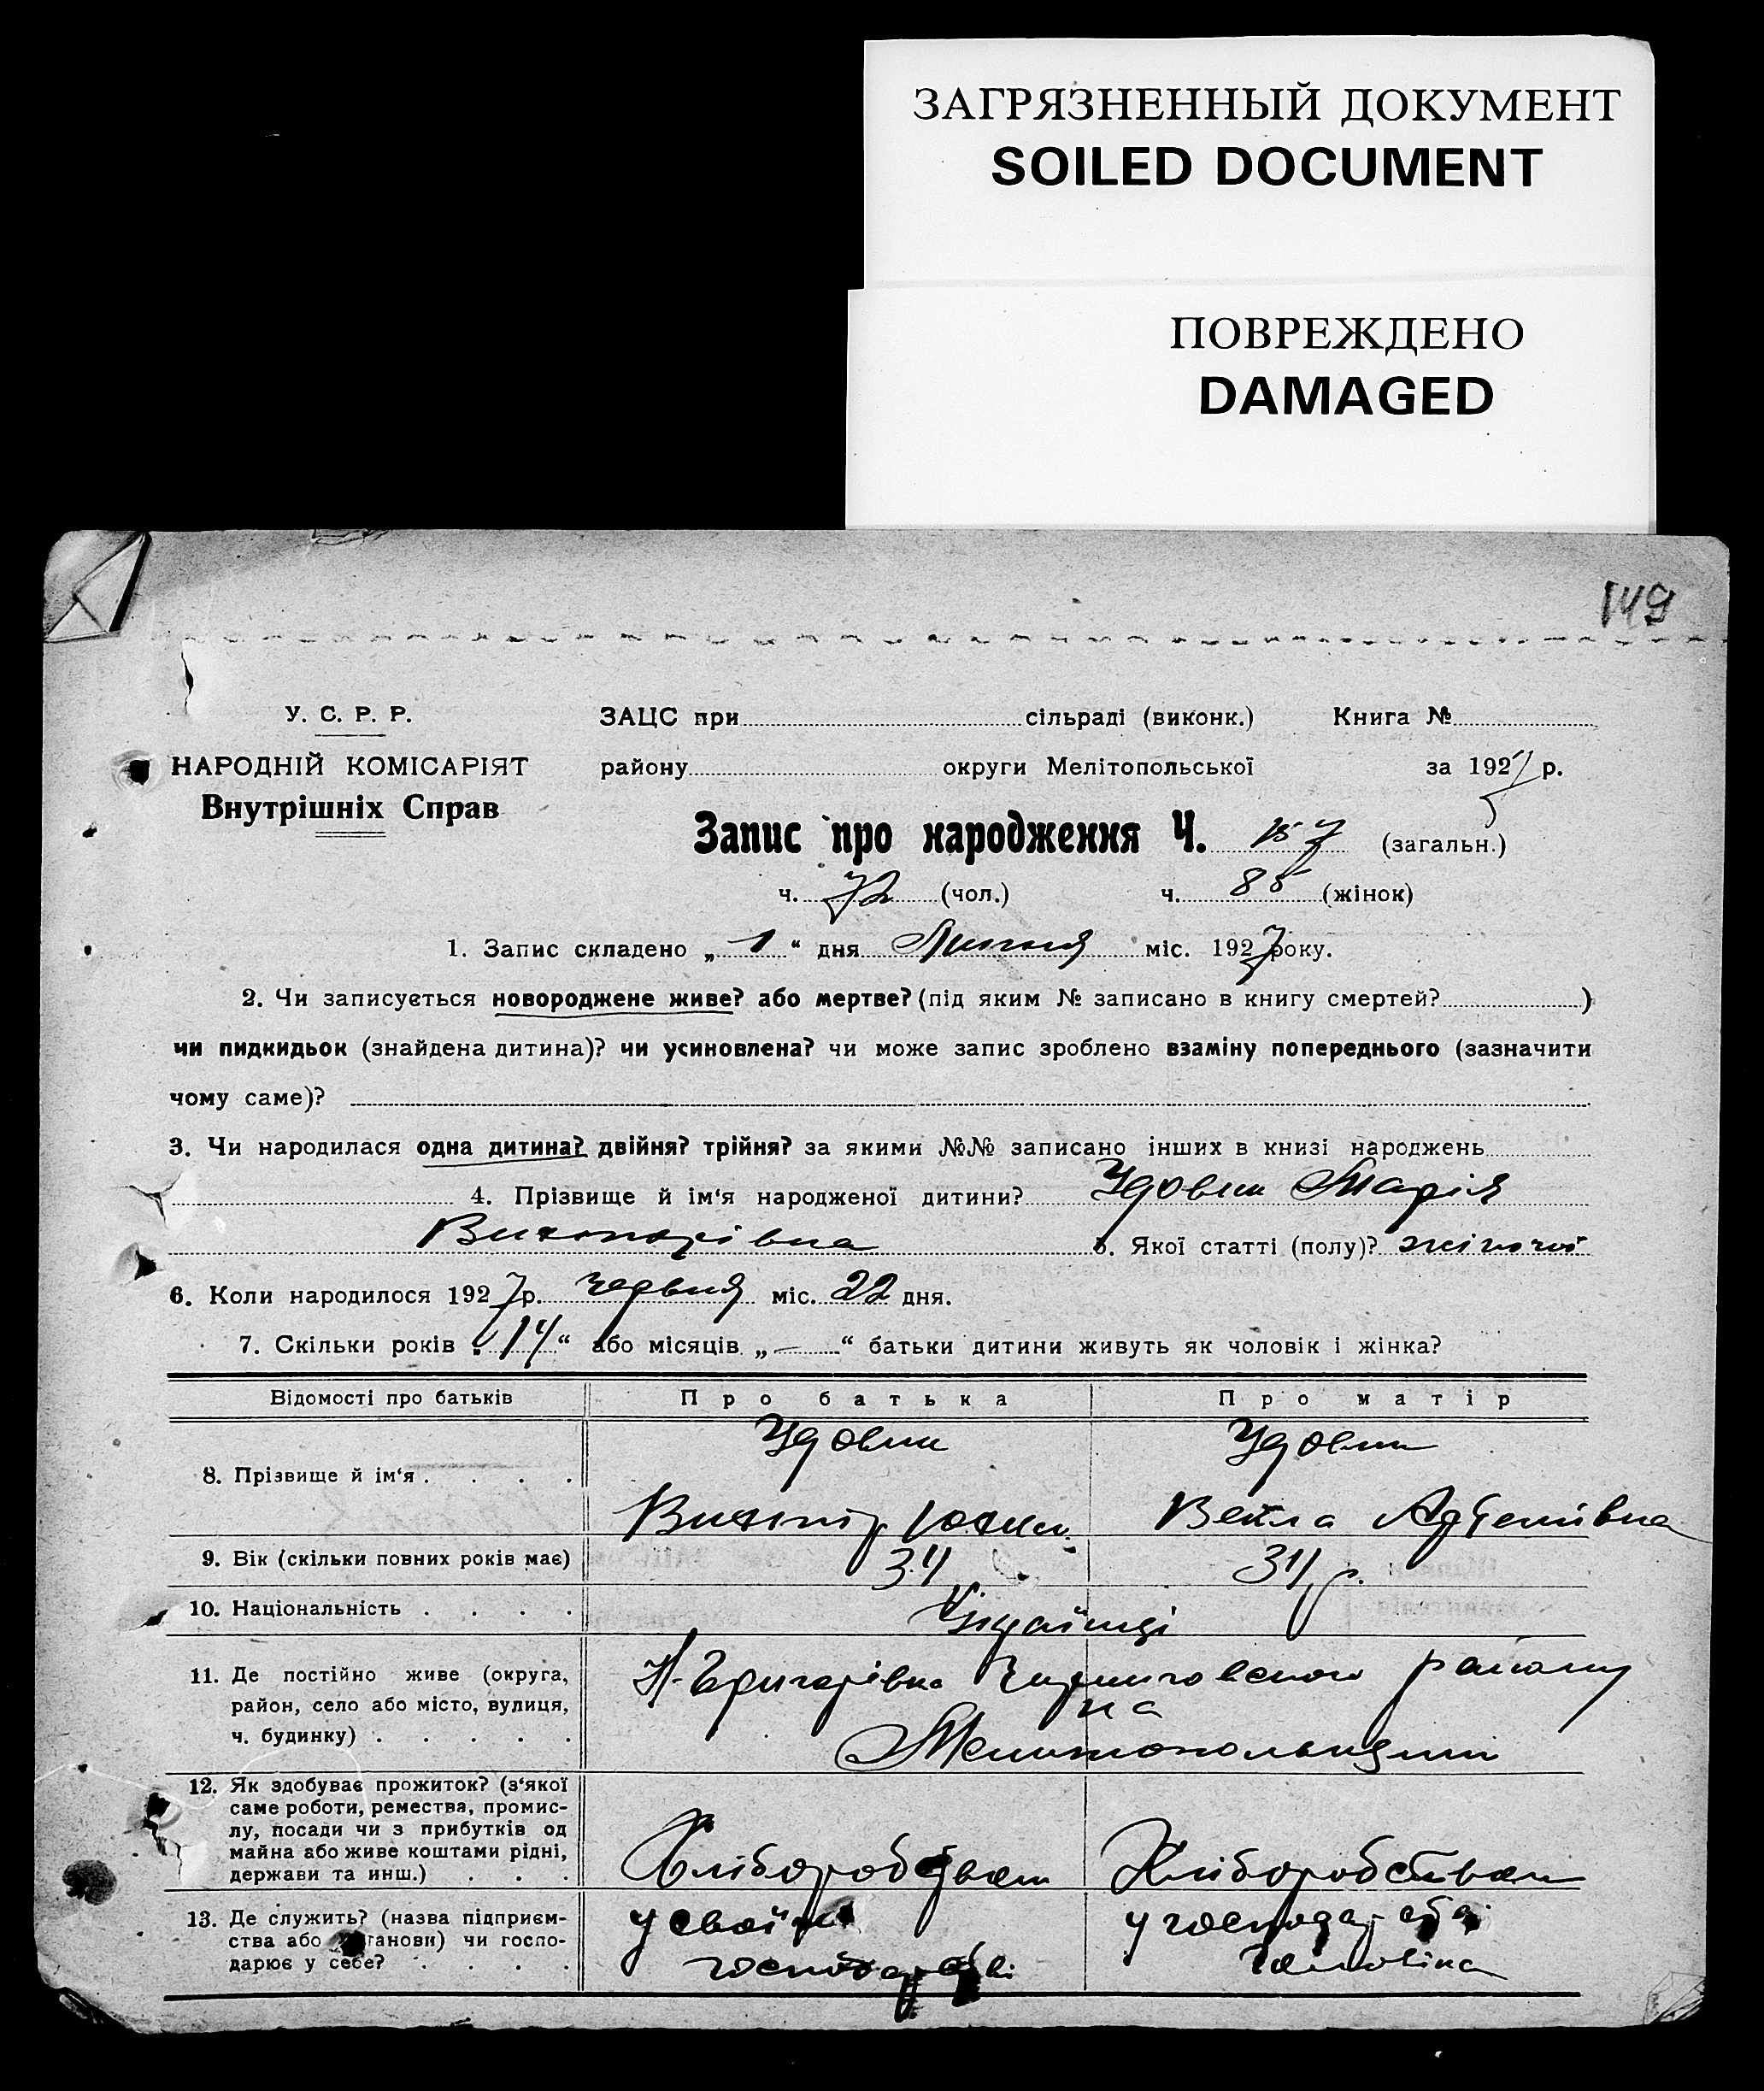 ЗАГРЯЗНЕННЫЙ ДОКУМЕНТ
SOILED DOCUMENT
ПОВРЕЖДЕНО
DAMAGED
149
У. С. Р. Р.
НАРОДНІЙ КОМІСАРІЯТ
Внутрішніх Справ
ЗАЦС при сільраді (виконк.) Книга №
району округи Мелітопольської за 1927 р.
Запис про народження Ч. 157 (загальн.)
ч. 72 (чол.) ч. 85 (жінок)
1. Запис складено „ 1 “ дня Липня міс. 1927 року.
2. Чи записується новороджене живе? або мертве? (під яким № записано в книгу смертей? )
чи пидкидьок (знайдена дитина)? чи усиновлена? чи може запис зроблено взаміну попереднього (зазначити
чому саме)?
3. Чи народилася одна дитина? двійня? трійня? за якими №№ записано інших в книзі народжень
4. Прізвище й ім‘я народженої дитини? Удовик Марія
Викторівна 5. Якої статті (полу)? жіночої
6. Коли народилося 1927 р. червня міс. 22 дня.
7. Скільки років „ 14 “ або місяців „ — “ батьки дитини живуть як чоловік і жінка?
Відомості про батьків Про батька Про матір
8. Прізвище й ім‘я . . . . Удовик Удовик
Виктор Векла Артемівна
9. Вік (скільки повних років має) 34 34 р.
10. Національність . . . . Українці
11. Де постійно живе (округа,
район, село або місто, вулиця,
ч. будинку) . . . . .
Н-Григорівка Черниговского району
на
Мелитопольщині
12. Як здобуває прожиток? (з‘якої
саме роботи, ремества, промис-
лу, посади чи з прибутків од
майна або живе коштами рідні,
держави та инш.) . . .
Хліборобством Хліборобством
13. Де служить? (назва підприєм-
ства або установи) чи госпо-
дарює у себе? . . . .
у своїм у господарстві
господарстві чоловіка